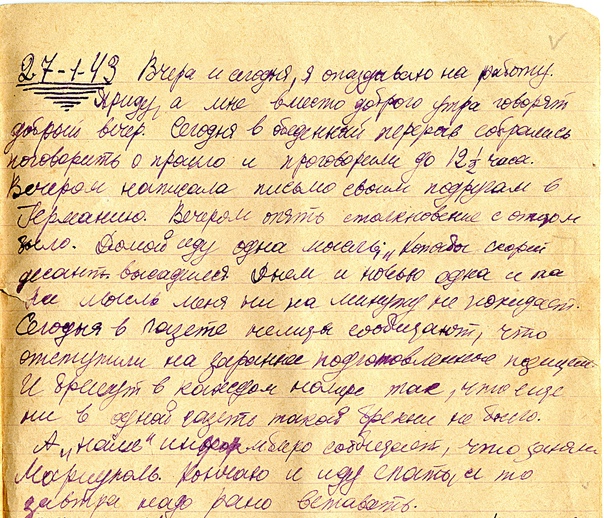 27-1-43 Вчера и сегодня, я опаздываю на работу.
Приду, а мне вместо доброго утра говорят
добрый вечер. Сегодня в обеденный перерыв собрались
поговорить о прошло и проговорили до 12 ½ часа.
Вечером написала письмо своим подругам в
Германию. Вечером опять столкновение с отцом
было. Домой иду одна мысль, скорей
десант высадился Днем и ночью одна и та
же мысль меня ни на минуту не покидает.
Сегодня в газете немцы сообщают, что
отступили на заранее подготовленные позиции.
И брешут в каждом номере так, что еще
ни в одной газеты такой брехни не было.
А „наше" информбюро сообщает, что заняли
Мариуполь. Кончаю и иду спать, а то
завтра надо рано вставать.